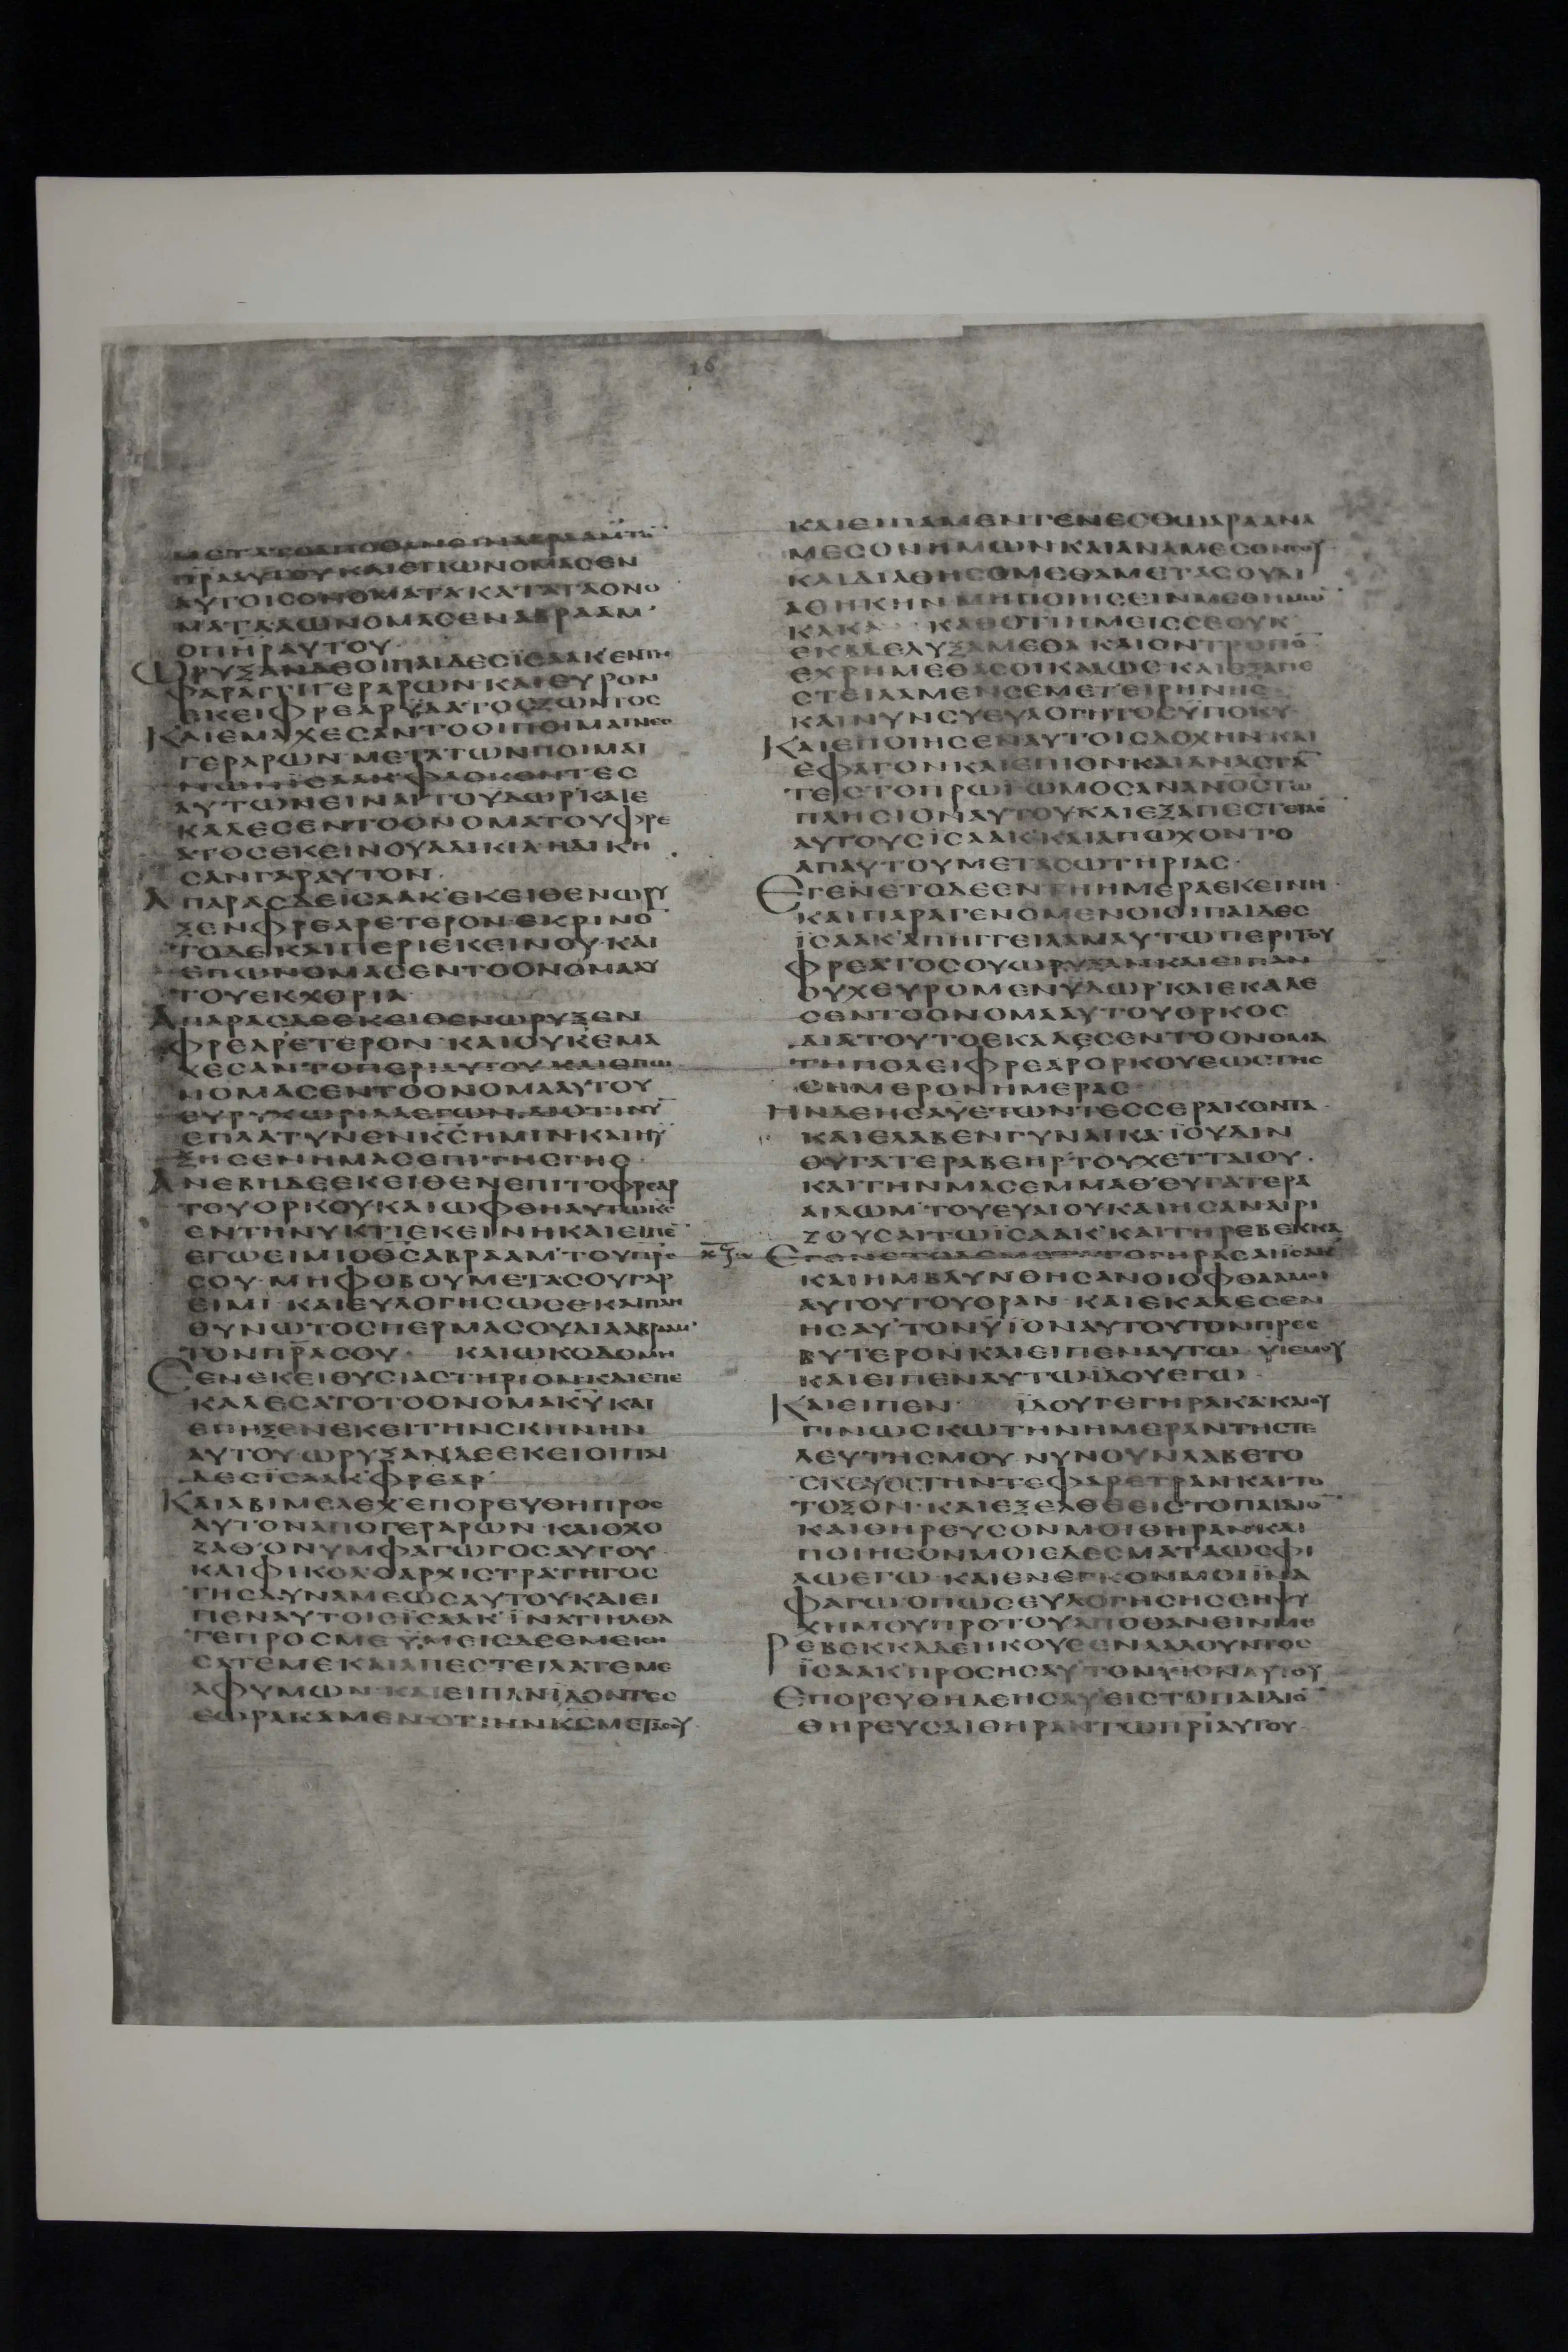 16
ΜΕΤΑΤΟΑΠΟΘΑΝΕΙΝΑΒΡΑΑΜΤΟ̅
ΠΡΑΑΥΤΟΥΚΑΙΕΠΩΝΟΜΑΣΕΝ
ΑΥΤΟΙΣΟΝΟΜΑΤΑΚΑΤΑΤΑΟΝΟ
ΜΑΤΑΑΩΝΟΜΑΣΕΝΑΒΡΑΑΜ
ΟΠΗΡΑΥΤΟΥ
ΩΡΥΞΑΝΔΕΟΙΠΑΙΔΕΣΪΣΑΑΚΕΝΤΗ
ΦΑΡΑΓΓΙΓΕΡΑΡΩΝΚΑΙΕΥΡΟΝ
ΕΚΕΙΦΡΕΑΡΫΔΑΤΟΣΖΩΝΤΟΣ
ΚΑΙΕΜΑΧΕΣΑΝΤΟΟΙΠΟΙΜΑΙΝΕΣ
ΓΕΡΑΡΩΝ ΜΕΤΑΤΩΝΠΟΙΜΑΙ
ΝΩΝΪΣΑΑΚΦΑΣΚΟΝΤΕΣ
ΑΥΤΩΝΕΙΝΑΙΤΟΥΔΩΡΚΑΙΕ
ΚΑΛΕΣΕΝΤΟΟΝΟΜΑΤΟΥΦΡΕ
ΑΤΟΣΕΚΕΙΝΟΥΑΔΙΚΙΑΗΔΙΚΗ
ΣΑΝΓΑΡΑΥΤΟΝ
ΑΠΑΡΑΣΔΕΪΣΑΑΚΕΚΕΙΘΕΝΩΡΥ
ΞΕΝΦΡΕΑΡΕΤΕΡΟΝΕΚΡΙΝΟ̅
ΤΟΔΕΚΑΙΠΕΡΙΕΚΕΙΝΟΥ ΚΑΙ
ΕΠΩΝΟΜΑΣΕΝΤΟΟΝΟΜΑΑΥ
ΤΟΥΕΚΧΘΡΙΑ
ΑΠΑΡΑΣΔΕΕΚΕΙΘΕΝΩΡΥΞΕΝ
ΦΡΕΑΡΕΤΕΡΟΝ ΚΑΙΟΥΚΕΜΑ
ΧΕΣΑΝΤΟΠΕΡΙΑΥΤΟΥ ΚΑΙΕΠΩ
ΝΟΜΑΣΕΝΤΟΟΝΟΜΑΑΥΤΟΥ
ΕΥΡΥΧΩΡΙΑΛΕΓΩΝΔΙΟΤΙΝΥ̅
ΕΠΛΑΤΥΝΕΝΚ̅Σ̅ΗΜΙΝ ΚΑΙΗΥ
ΞΗΣΕΝΗΜΑΣΕΠΙΤΗΣΓΗΣ
ΑΝΕΒΗΔΕΕΚΕΙΘΕΝΕΠΙΤΟΦΡΕΑΡ
ΤΟΥΟΡΚΟΥΚΑΙΩΦΘΗΑΥΤΩΚ̅Σ̅
ΕΝΤΗΝΥΚΤΙΕΚΕΙΝΗΚΑΙΕΙΠΕ̅
ΕΓΩΕΙΜΙΟΘ̅Σ̅ΑΒΡΑΑΜ ΤΟΥΠΡΣ
ΣΟΥ ΜΗΦΟΒΟΥΜΕΤΑΣΟΥΓΑΡ
ΕΙΜΙ ΚΑΙΕΥΛΟΓΗΣΩΣΕΚΑΙΠΛΗ
ΘΥΝΩΤΟΣΠΕΡΜΑΣΟΥΔΙΑΑΒΡΑΑΜ
ΤΟΝΠΡ̅Α̅ΣΟΥ ΚΑΙΩΚΟΔΟΜΗ
ΣΕΝΕΚΕΙΘΥΣΙΑΣΤΗΡΙΟΝΚΑΙΕΠΕ
ΚΑΛΕΣΑΤΟΤΟΟΝΟΜΑΚ̅Υ̅ΚΑΙ
ΕΠΗΞΕΝΕΚΕΙΤΗΝΣΚΗΝΗΝ
ΑΥΤΟΥΩΡΥΞΑΝΔΕΕΚΕΙΟΙΠΑΙ
ΔΕΣΪΣΑΑΚ ΦΡΕΑΡ
ΚΑΙΑΒΙΜΕΛΕΧ ΕΠΟΡΕΥΘΗΠΡΟΣ
ΑΥΤΟΝΑΠΟΓΕΡΑΡΩΝ ΚΑΙΟΧΟ
ΖΑΘ ΟΝΥΜΦΑΓΩΓΟΣΑΥΤΟΥ
ΚΑΙΦΙΚΟΛΟΑΡΧΙΣΤΡΑΤΗΓΟΣ
ΤΗΣΔΥΝΑΜΕΩΣΑΥΤΟΥΚΑΙΕΙ
ΠΕΝΑΥΤΟΙΣΪΣΑΑΚ ΪΝΑΤΙΗΛΘΑ
ΤΕΠΡΟΣΜΕ ΫΜΕΙΣΔΕΕΜΕΙΣΗ
ΣΑΤΕΜΕΚΑΙΑΠΕΣΤΕΙΛΑΤΕΜΕ
ΑΦΥΜΩΝ ΚΑΙΕΙΠΑΝΪΔΟΝΤΕΣ
ΕΩΡΑΚΑΜΕΝΟΤΙΗΝΚ̅Σ̅ΜΕΤΑΣΟΥ
ΚΑΙΕΙΠΑΜΕΝΓΕΝΕΣΘΩΑΡΑΑΝΑ
ΜΕΣΟΝΗΜΩΝΚΑΙΑΝΑΜΕΣΟΝΣΟΥ
ΚΑΙΔΙΑΘΗΣΟΜΕΘΑΜΕΤΑΣΟΥΔΙ
ΑΘΗΚΗΝ ΜΗΠΟΙΗΣΕΙΝΜΕΘΗΜΩ̅
ΚΑΚΑ ΚΑΘΟΤΙΗΜΕΙΣΣΕΟΥΚ
ΕΚΔΕΛΥΞΑΜΕΘΑ ΚΑΙΟΝΤΡΟΠΟ̅
ΕΧΡΗΜΕΘΑΣΟΙΚΑΛΩΣ ΚΑΙΕΞΑΠΕ
ΣΤΕΙΛΑΜΕΝΣΕΜΕΤΕΙΡΗΝΗΣ
ΚΑΙΝΥΝΣΥΕΥΛΟΓΗΤΟΣΥΠΟΚ̅Υ̅
ΚΑΙΕΠΟΙΗΣΕΝΑΥΤΟΙΣΔΟΧΗΝ ΚΑΙ
ΕΦΑΓΟΝΚΑΙΕΠΙΟΝΚΑΙΑΝΑΣΤΑ̅
ΤΕΣΤΟΠΡΩΪΩΜΟΣΑΝΑΝΟΣΤΩ
ΠΛΗΣΙΟΝΑΥΤΟΥΚΑΙΕΞΑΠΕΣΤΕΙΛΕ
ΑΥΤΟΥΣΪΣΑΑΚ ΚΑΙΑΠΩΧΟΝΤΟ
ΑΠΑΥΤΟΥΜΕΤΑΣΩΤΗΡΙΑΣ
ΕΓΕΝΕΤΟΔΕΕΝΤΗΗΜΕΡΑΕΚΕΙΝΗ
ΚΑΙΠΑΡΑΓΕΝΟΜΕΝΟΙΟΙΠΑΙΔΕΣ
ΪΣΑΑΚ ΑΠΗΓΓΕΙΛΑΝΑΥΤΩΠΕΡΙΤΟΥ
ΦΡΕΑΤΟΣΟΥΩΡΥΞΑΝΚΑΙΕΙΠΑΝ
ΟΥΧΕΥΡΟΜΕΝΫΔΩΡ ΚΑΙΕΚΑΛΕ
ΣΕΝΤΟΟΝΟΜΑΑΥΤΟΥΟΡΚΟΣ
ΔΙΑΤΟΥΤΟΕΚΑΛΕΣΕΝΤΟΟΝΟΜΑ
ΤΗΠΟΛΕΙΦΡΕΑΡΟΡΚΟΥΕΩΣΤΗΣ
ΣΗΜΕΡΟΝΗΜΕΡΑΣ
ΗΝΔΕΗΣΑΥΕΤΩΝΤΕΣΣΕΡΑΚΟΝΤΑ
ΚΑΙΕΛΑΒΕΝΓΥΝΑΙΚΑ ΪΟΥΔΙΝ
ΘΥΓΑΤΕΡΑΒΕΗΡ ΤΟΥΧΕΤΤΑΙΟΥ
ΚΑΙΤΗΝΜΑΣΕΜΜΑΘ ΘΥΓΑΤΕΡΑ
ΑΙΛΩΜ ΤΟΥΕΥΑΙΟΥΚΑΙΗΣΑΝΑΙΡΙ
ΖΟΥΣΑΙΤΩΪΣΑΑΚ ΚΑΙΤΗΡΕΒΕΚΚΑ
ΕΓΕΝΕΤΟΔΕΜΕΤΑΤΟΓΗΡΑΣΑΙΪΣΑΑΚ
ΚΑΙΗΜΒΛΥΝΘΗΣΑΝΟΙΟΦΘΑΛΜΟΙ
ΑΥΤΟΥΤΟΥΟΡΑΝ ΚΑΙΕΚΑΛΕΣΕΝ
ΗΣΑΥ ΤΟΝΫΪΟΝΑΥΤΟΥΤΟΝΠΡΕΣ
ΒΥΤΕΡΟΝΚΑΙΕΙΠΕΝΑΥΤΩ ΥΙΕΜΟΥ
ΚΑΙΕΙΠΕΝΑΥΤΩΪΔΟΥΕΓΩ
ΚΑΙΕΙΠΕΝ ΪΔΟΥΓΕΓΗΡΑΚΑΚΑΙΟΥ
ΓΙΝΩΣΚΩΤΗΝΗΜΕΡΑΝΤΗΣΤΕ
ΛΕΥΤΗΣΜΟΥ ΝΥΝΟΥΝΛΑΒΕΤΟ
ΣΚΕΥΟΣΤΗΝΤΕΦΑΡΕΤΡΑΝΚΑΙΤΟ
ΤΟΞΟΝ ΚΑΙΕΞΕΛΘΕΕΙΣΤΟΠΑΙΔΙΟ̅
ΚΑΙΘΗΡΕΥΣΟΝΜΟΙΘΗΡΑΝΚΑΙ
ΠΟΙΗΣΟΝΜΟΙΕΔΕΣΜΑΤΑΩΣΦΙ
ΛΩΕΓΩ ΚΑΙΕΝΕΓΚΟΝΜΟΙΪΝΑ
ΦΑΓΩ ΟΠΩΣΕΥΛΟΓΗΣΗΣΕΗΨΥ
ΧΗΜΟΥΠΡΟΤΟΥΑΠΟΘΑΝΕΙΝΜΕ
ΡΕΒΕΚΚΑΔΕΗΚΟΥΣΕΝΛΑΛΟΥΝΤΟΣ
ΪΣΑΑΚ ΠΡΟΣΗΣΑΥ ΤΟΝΥΙΟΝΑΥΤΟΥ
ΕΠΟΡΕΥΘΗΔΕΗΣΑΥ ΕΙΣΤΟΠΑΙΔΙΟ̅
ΘΗΡΕΥΣΑΙΘΗΡΑΝΤΩΠΡ̅Ι̅ΑΥΤΟΥ